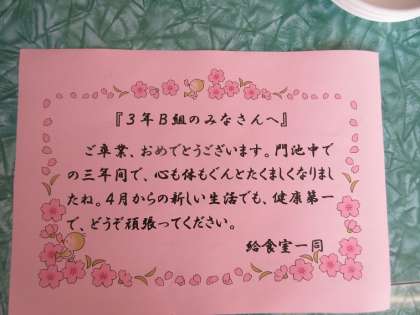 『３年Ｂ組のみなさんへ』
ご卒業、おめでとうございます。門池中で
の三年間で、心も体もぐんとたくましくなりまし
たね。４月からの新しい生活でも、健康第一
で、どうぞ頑張ってください。
給食室一同